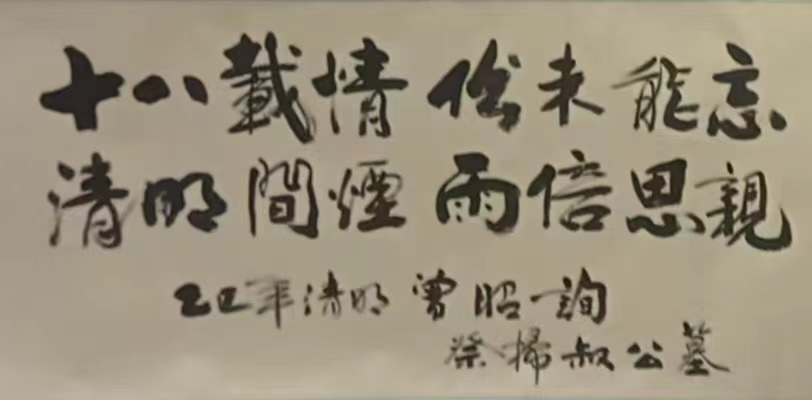 十八載情份未能忘
清明間煙雨倍思親
年清明曾昭詢
祭掃叔公墓